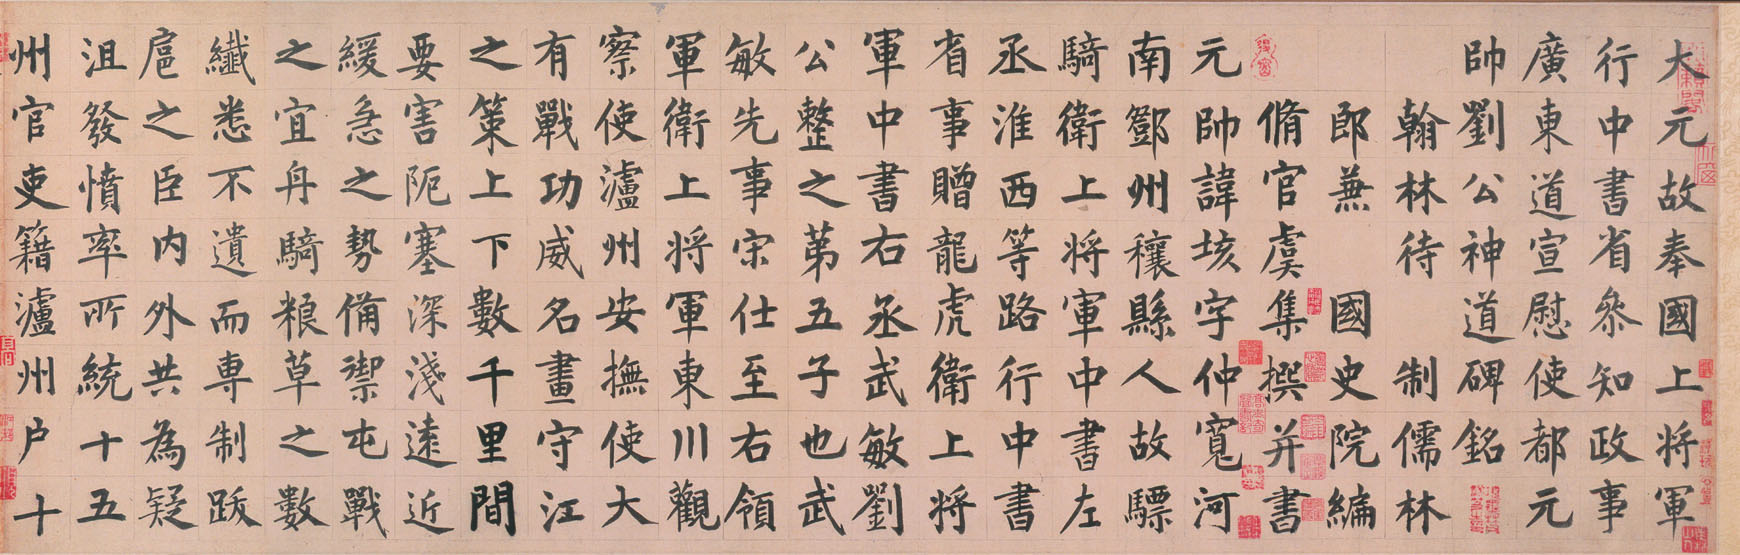 大元故奉國上將軍
行中書省叅知政事
廣東道宣慰使都元
帥劉公神道碑銘
翰林待 制儒林
郎兼 國史院編
脩官虞集撰并書
元帥諱垓字仲寬河
南鄧州穰縣人故驃
騎衛上將軍中書左
丞淮西等路行中書
省事贈龍虎衛上將
軍中書右丞武敏劉
公整之第五子也武
敏先事宋仕至右領
軍衛上將軍東川觀
察使瀘州安撫使大
有戰功威名畫守江
之策上下數千里間
要害阨塞深淺遠近
緩急之勢備禦屯戰
之宜舟騎粮草之數
纖悉不遺而專制跋
扈之臣内外共為疑
沮發憤率所統十五
州官吏籍瀘州户十